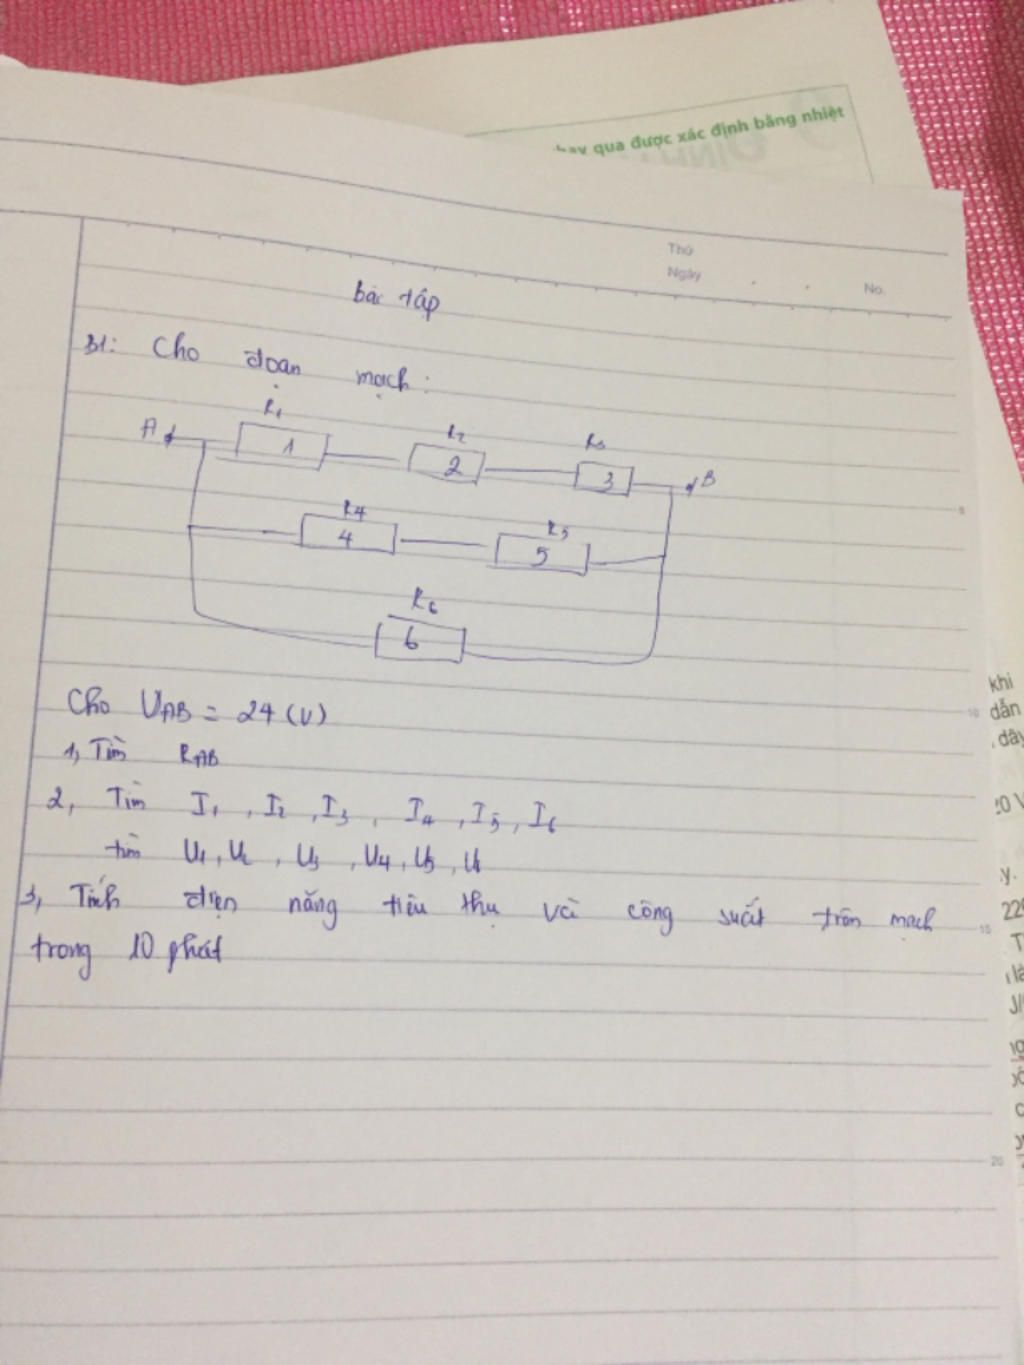 hay qua được xác định bằng nhiệt
Thứ
Ngày . . No.
bài tập
B1: Cho đoạn mạch:
R1 R2 R3
A 1 2 3 B
R4 R5
4 5
R6
6
Cho UAB = 24 (V)
1, Tìm RAB
2, Tìm I1, I2, I3, I4, I5, I6
tìm U1, U2, U3, U4, U5, U6
3, Tính điện năng tiêu thụ và công suất trên mạch
trong 10 phút
5
10
15
20
khi
dẫn
dây
20 V
y.
J/